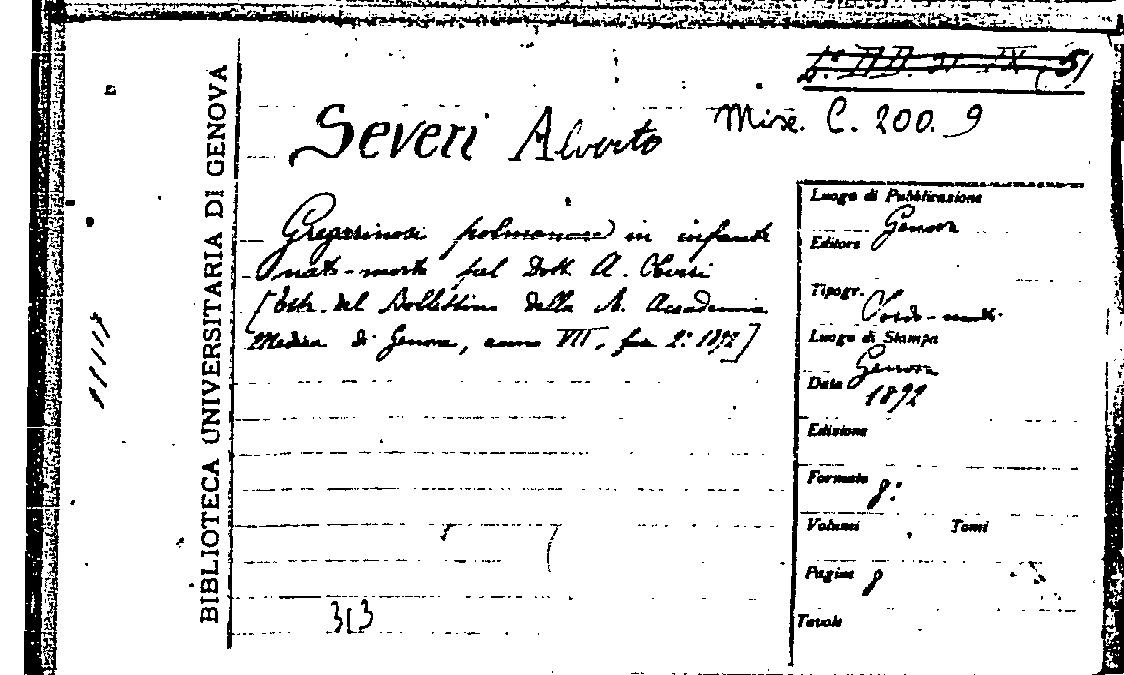 BIBLIOTECA UNIVERSITARIA DI GENOVA
Misc. C. 200. 9
Severi Alberto
Gregarinosi polmonare in infante
nato-morto pel Dott. A. Severi
[Estr. dal Bollettino della R. Accademia
Medica di Genova, anno VII, fas 2º 1892]
313
Luogo di Pubblicazione
Genova
Editore
Tipogr.
Sordo-muti
Luogo di Stampa
Genova
Data 1892
Edizione
Formato 8º
Volumi Tomi
Pagine 8
Tavole